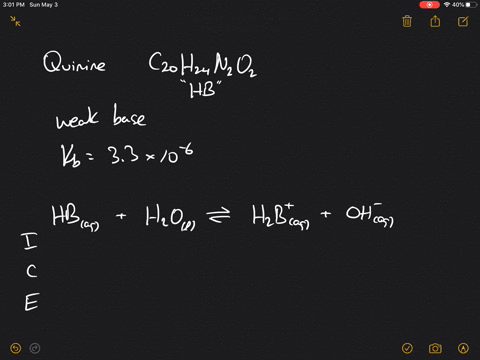 3:01 PM Sun May 3
40%
Quinine C₂₀H₂₄N₂O₂
"HB"
weak base
K_b = 3.3 × 10⁻⁶
HB(aq) + H₂O(l) ⇌ H₂B⁺(aq) + OH⁻(aq)
I
C
E